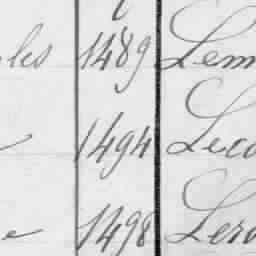 les 1489 Lem
1494 Leco
e 1498 Lero